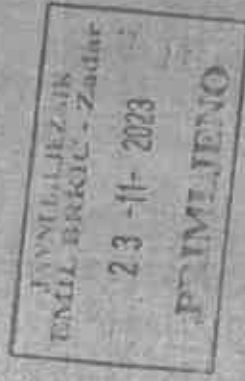 JAVNI BILJEŽNIK
EMIL BRKIĆ - Zadar
23 -11- 2023
PRIMLJENO